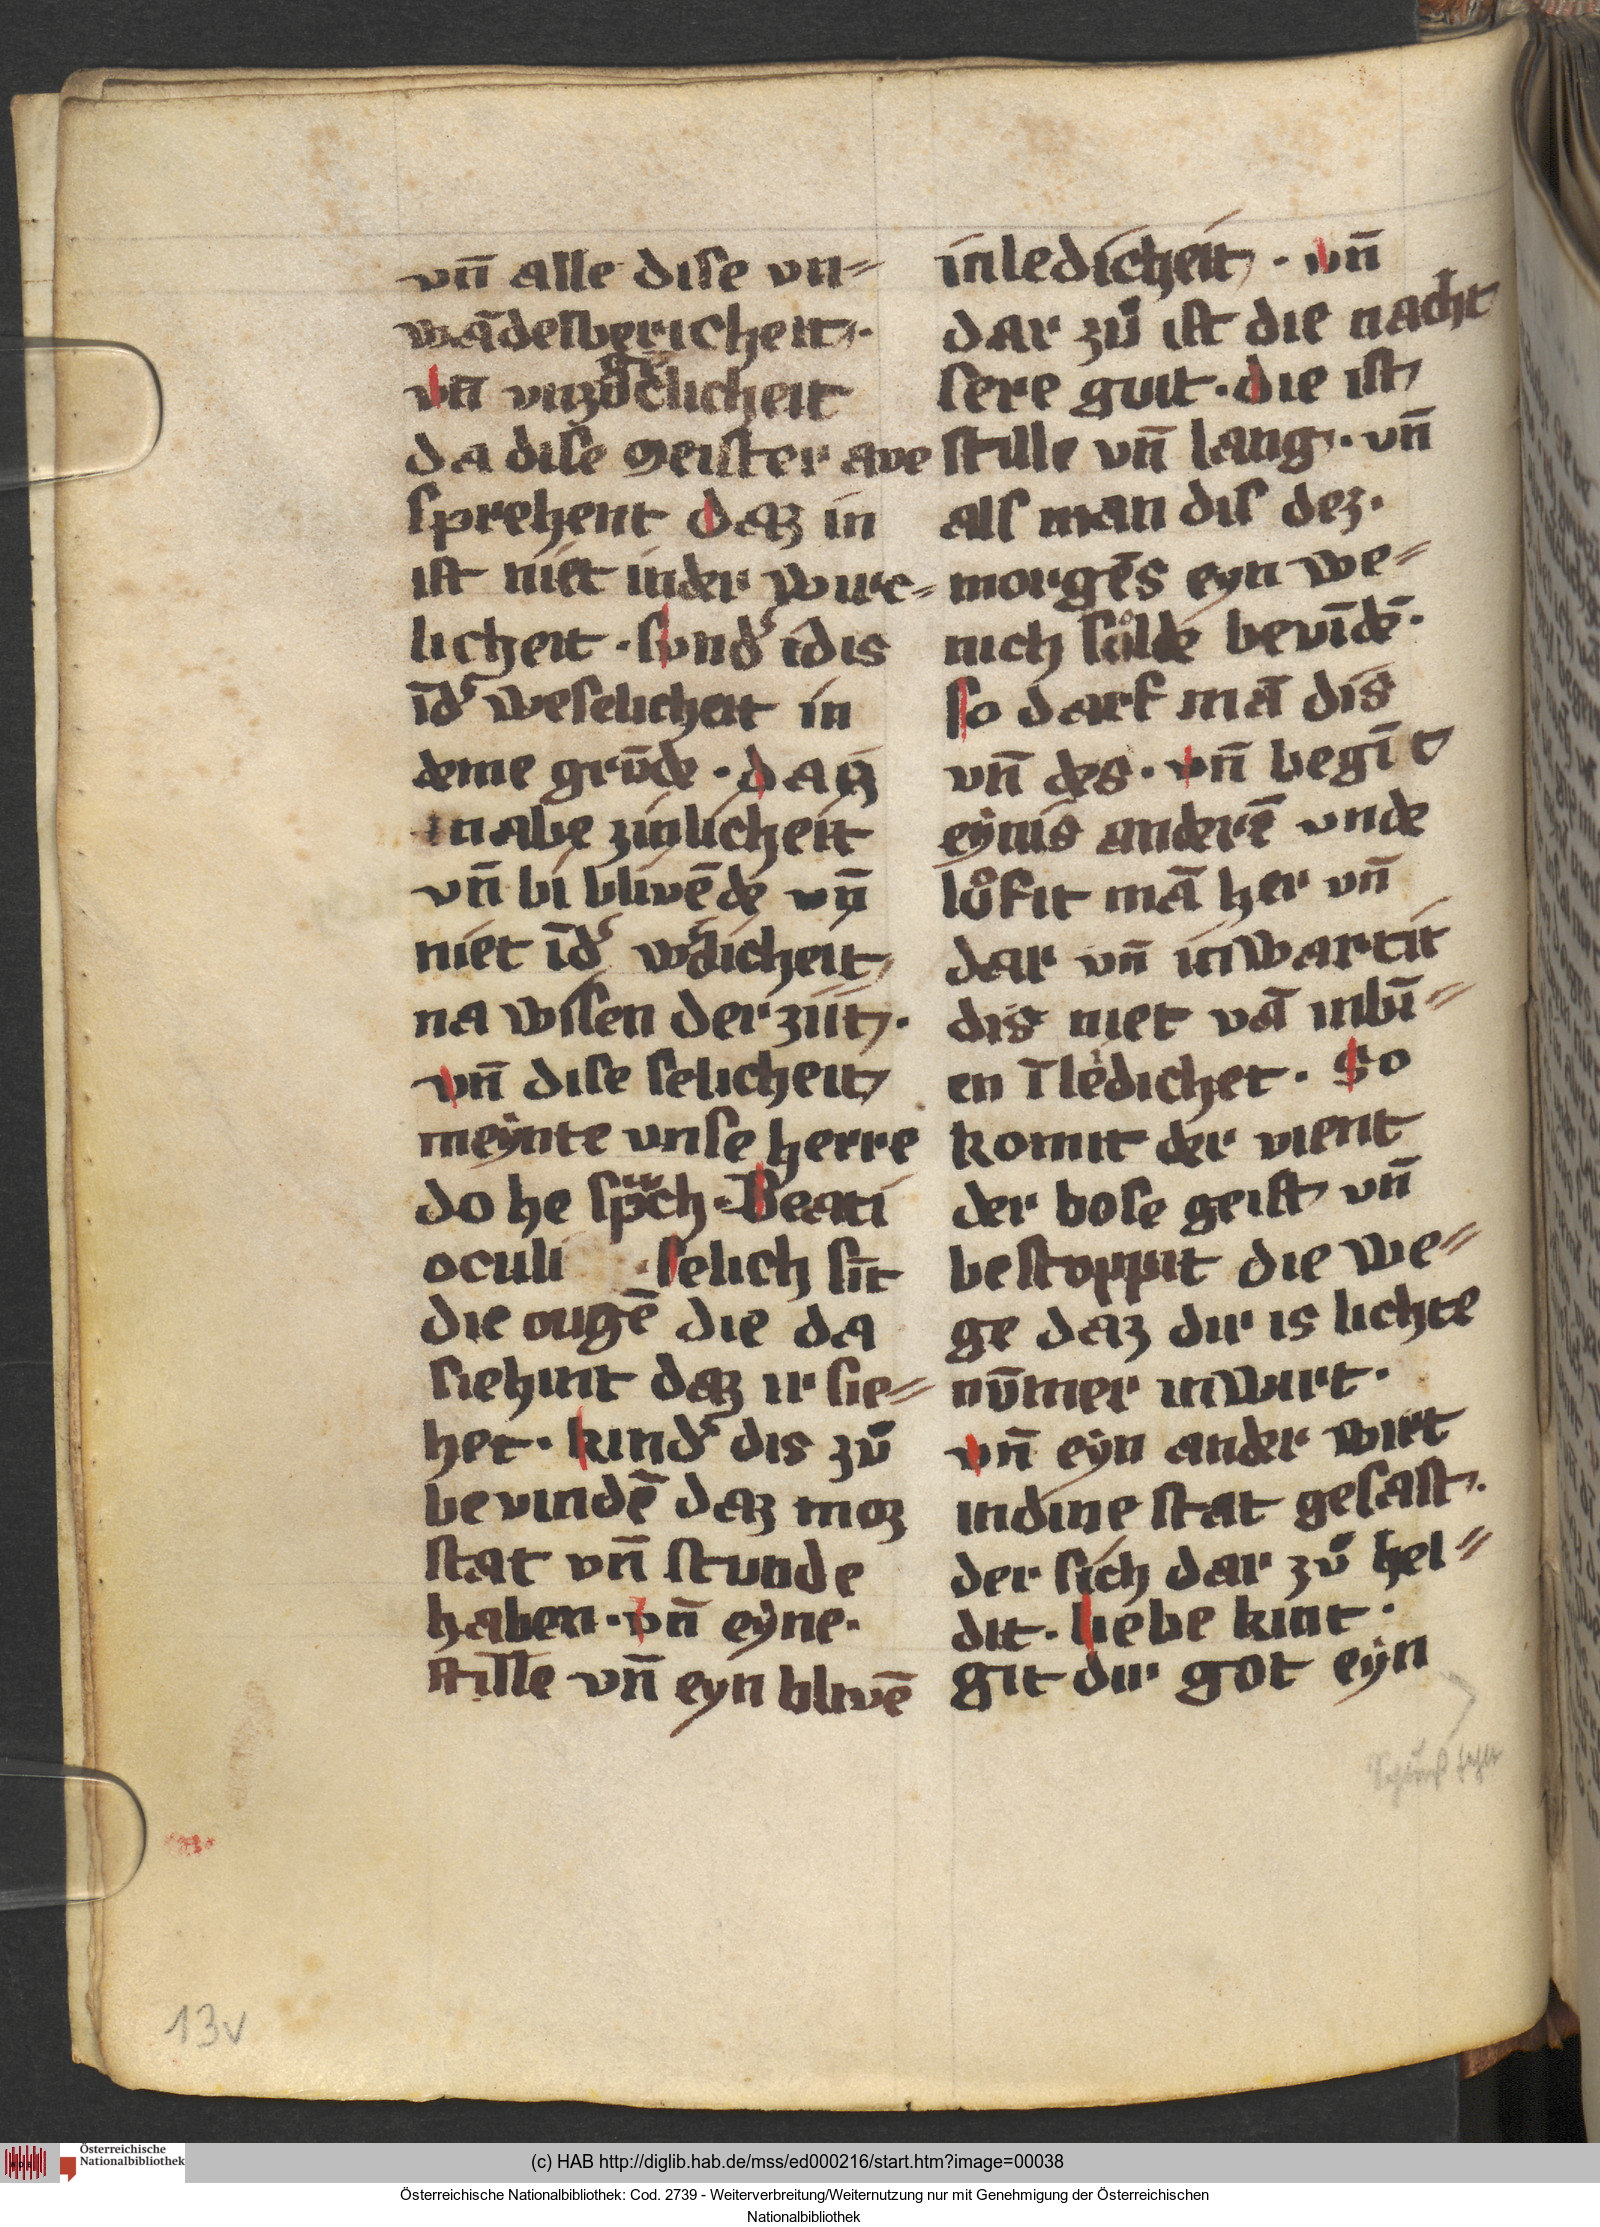 vn̄ alle dise vn=
wādelbericheit.
vn̄ vnzoͤclicheit
da dise meister ave
sprehent daz in
ist niet in der wurc=
licheit. sund' idis
īd' weselicheit in
deme grūde. daz
in abe zinlicheit
vn̄ bi blivēde vn̄
niet īd' w'dicheit
na wisen der ziit.
vn̄ dise selicheit
meynte vnse herre
do he sprach. Beati
oculi . selich sīt
die ougē die da
siehint daz ir sie=
het. kind' dis zů
bevindē daz moz
stat vn̄ stunde
haben. vn̄ eyne.
stille vn̄ eyn blivē
in ledicheit. vn̄
dar zů ist die nacht
sere guit. die ist
stille vn̄ lang. vn̄
als man dis dez.
morgēs eyn we=
nich sůlde bevīdē.
so darf mā dis
vn̄ des. vn̄ begīt
eynis anderē vnde
lůfit mā her vn̄
dar vn̄ inwartit
dis niet vā inbī=
en ī ledichet. So
komit der vient
der bose geist vn̄
bestoppit die we=
ge daz dir is lichte
nūmer inwirt.
vn̄ eyn ander wirt
in dine stat gesast.
der sich dar zů hel=
dit. liebe kint.
git dir got eyn
13v
(c) HAB http://diglib.hab.de/mss/ed000216/start.htm?image=00038
Österreichische Nationalbibliothek
Österreichische Nationalbibliothek: Cod. 2739 - Weiterverbreitung/Weiternutzung nur mit Genehmigung der Österreichischen
Nationalbibliothek